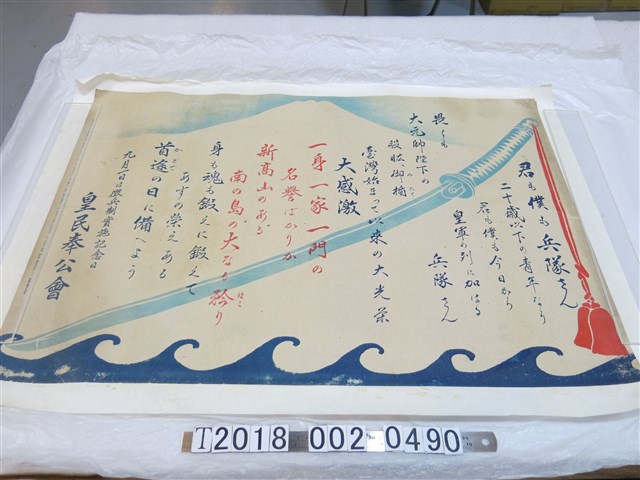 君も僕も兵隊さん
二十歳以下の青年なら
君も僕も今日から
皇軍の列に加はる
兵隊さん
畏くも
大元帥陛下の
股肱御楯
みたて
臺灣始まつて以来の大光栄
大感激
一身一家一門の
名誉ばかりか
新高山のある
南の島の大なる矜り
ほこ
身も魂も鍛えに鍛えて
あすの栄えある
首途の日に備へよう
かどで
九月一日は徴兵制實施記念日
皇民奉公會
T2018 002 0490